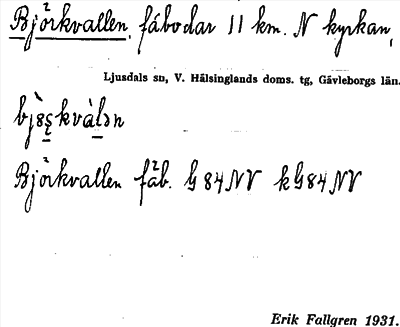 Björkvallen, fäbodar 11 km. N kyrkan,
Ljusdals sn, V. Hälsinglands doms. tg, Gävleborgs län.
Björkvallen fäb. G 84 NV kG 84 NV
Erik Fallgren 1931.